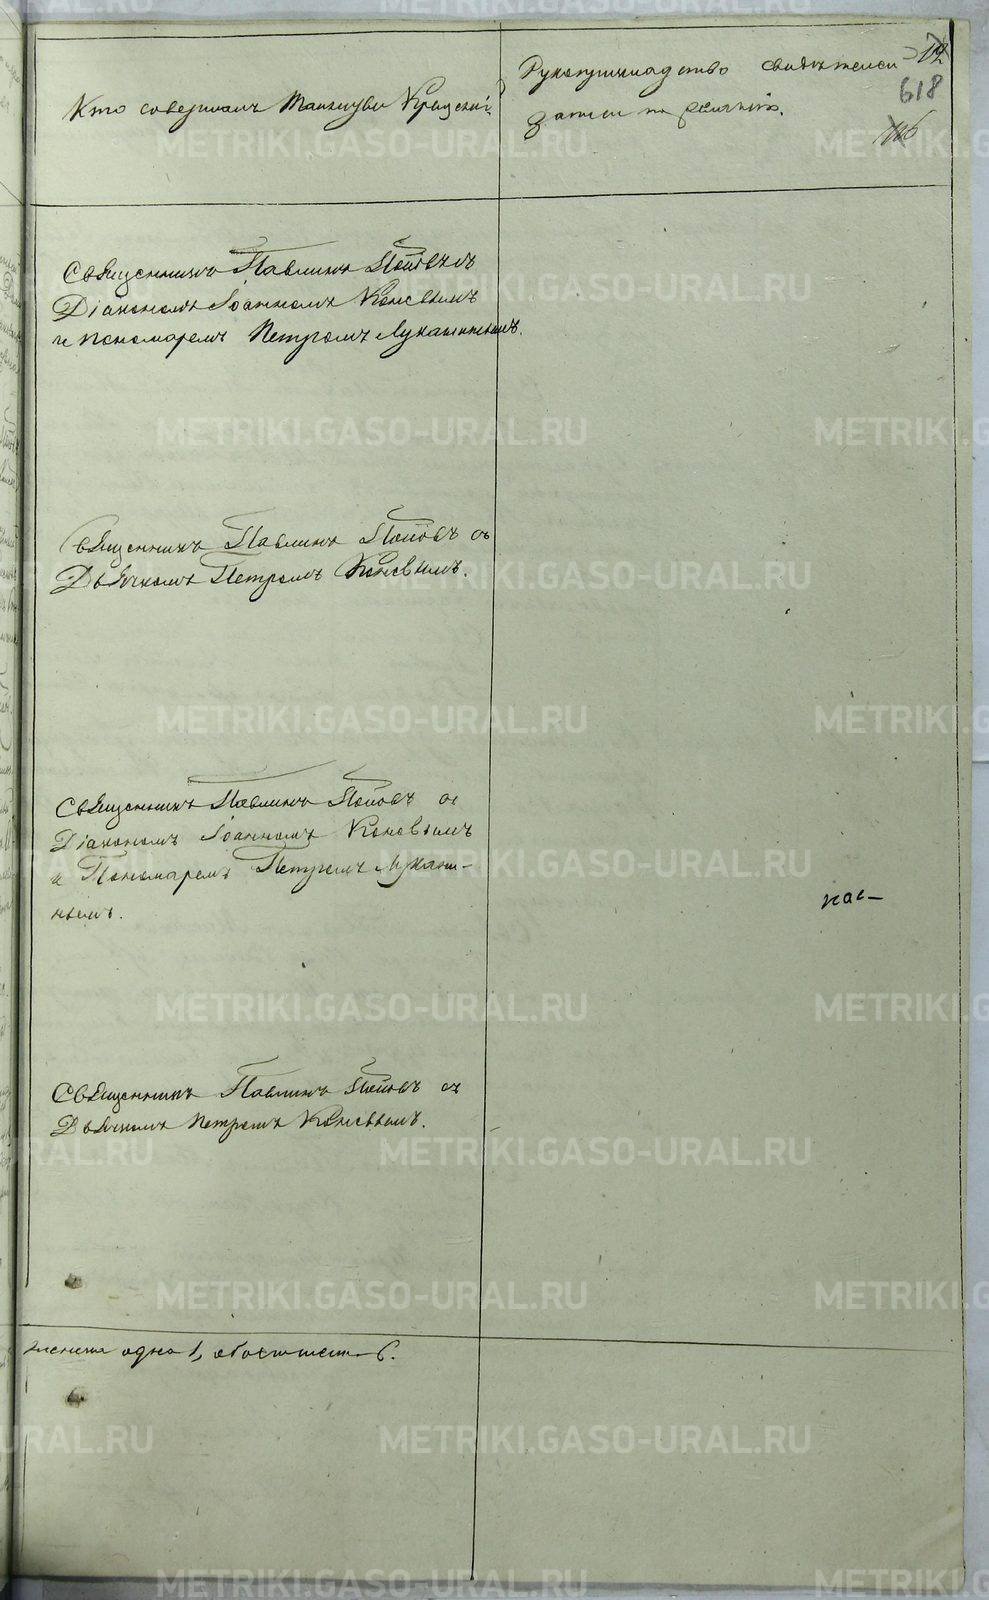 Кто совершалъ Таинство Крещенія
Рукоприкладство свидѣтелей
записи по желанію.
12
618
116
Священникъ Павлинъ Поповъ съ
Діакономъ Іоанномъ Коневымъ
и пономаремъ Петромъ Лукашинымъ.
Священникъ Павлинъ Поповъ съ
Дьячкомъ Петромъ Коневымъ.
Священникъ Павлинъ Поповъ съ
Діакономъ Іоанномъ Коневымъ
и Пономаремъ Петромъ Лукаши-
нымъ.
Священникъ Павлинъ Поповъ съ
Дьячкомъ Петромъ Коневымъ.
женска одна 1, обоего шесть 6.
METRIKI.GASO-URAL.RU